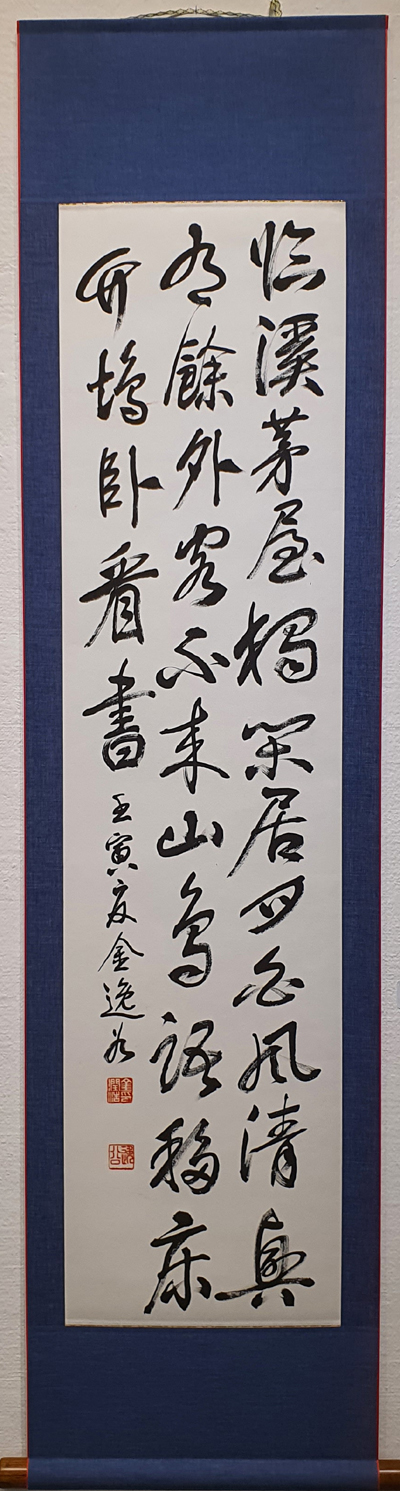 臨溪茅屋獨閑居月白風清興
有餘外客不來山鳥語移床
竹塢臥看書 壬寅夏金逸